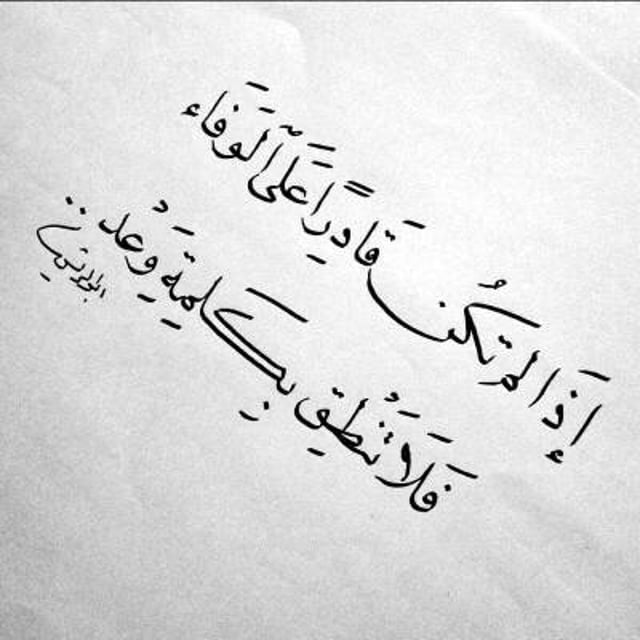 إذَا لم تَكُن قَادِرًا عَلَى الوَفَاء
فَلَا تَنْطِق بِكَلِمَةِ وَعْد ..